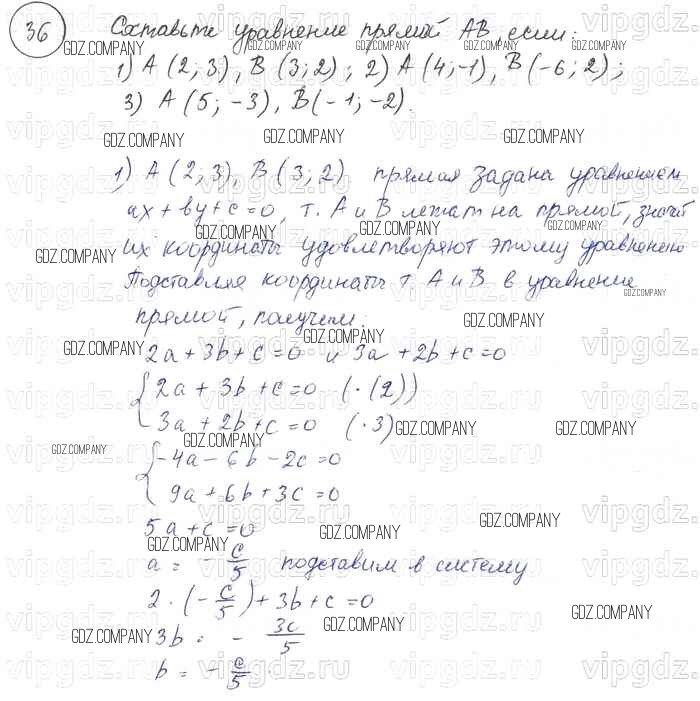 36 Составьте уравнение прямой AB, если:
1) A (2; 3), B (3; 2); 2) A (4; -1), B (-6; 2);
3) A (5; -3), B (-1; -2).
1) A (2; 3), B (3; 2) прямая задана уравнением
ax + by + c = 0, т. A и B лежат на прямой, значит
их координаты удовлетворяют этому уравнению
Подставляя координаты т. A и B в уравнение
прямой, получим:
2a + 3b + c = 0 и 3a + 2b + c = 0
2a + 3b + c = 0 (· (2))
3a + 2b + c = 0 (· 3)
-4a - 6b - 2c = 0
9a + 6b + 3c = 0
5a + c = 0
a = - c/5 подставим в систему
2 · (- c/5) + 3b + c = 0
3b = - 3c/5
b = - c/5
GDZ.COMPANY
vipgdz.ru